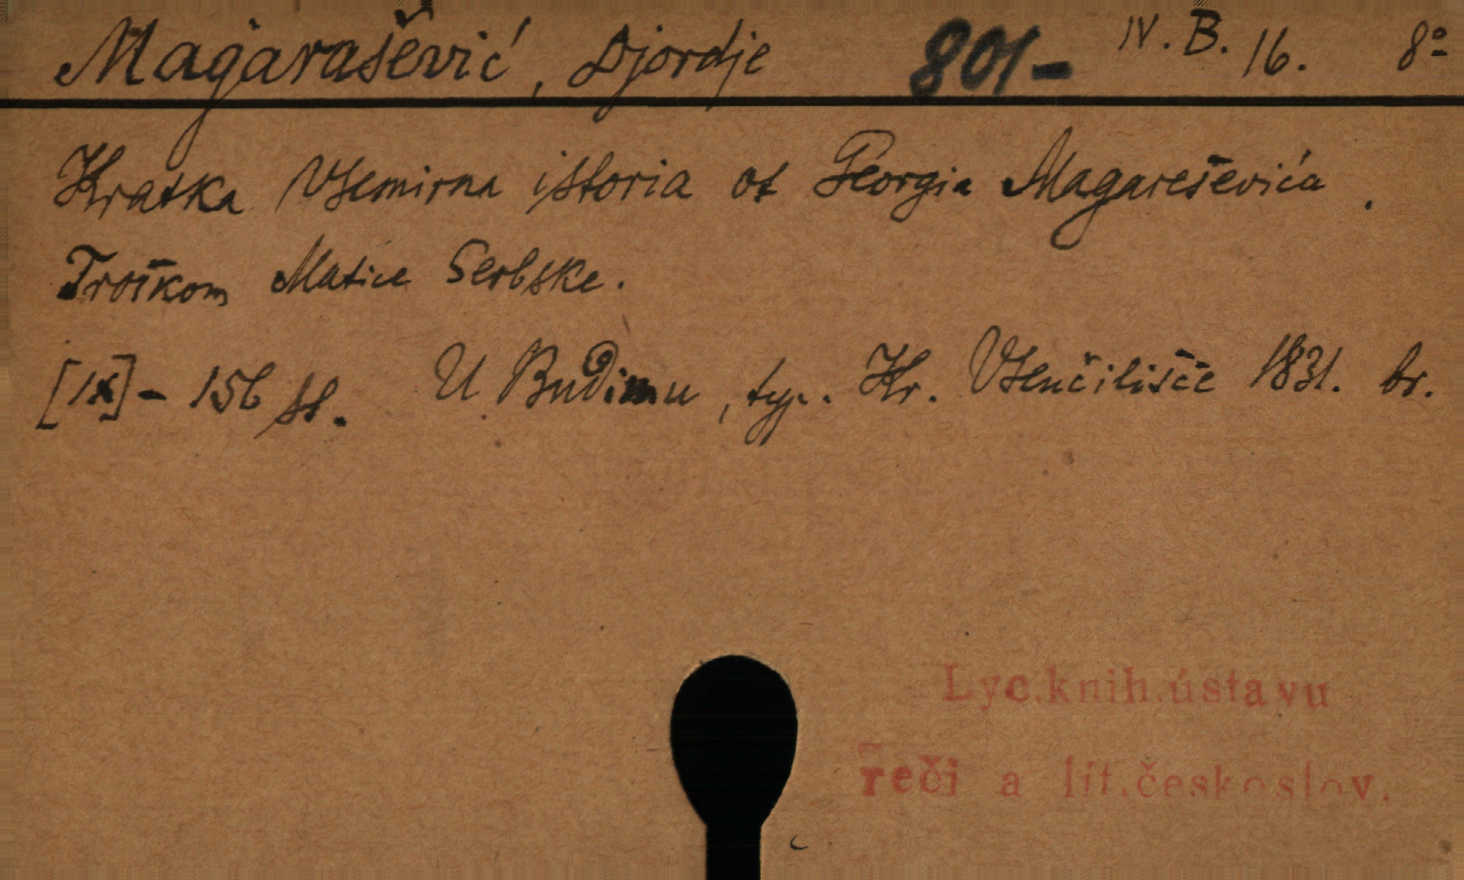 Magarašević, Djordje 801- IV. B. 16. 8º
Kratka Vsemirna istoria ot Georgia Magareševića.
Troškom Matice Serbske.
[IX] - 156 st. U Budimu, typ. Kr. Vsenčilišče 1831. br.
Lyc.knih.ústavu
řeči a lit.českoslov.